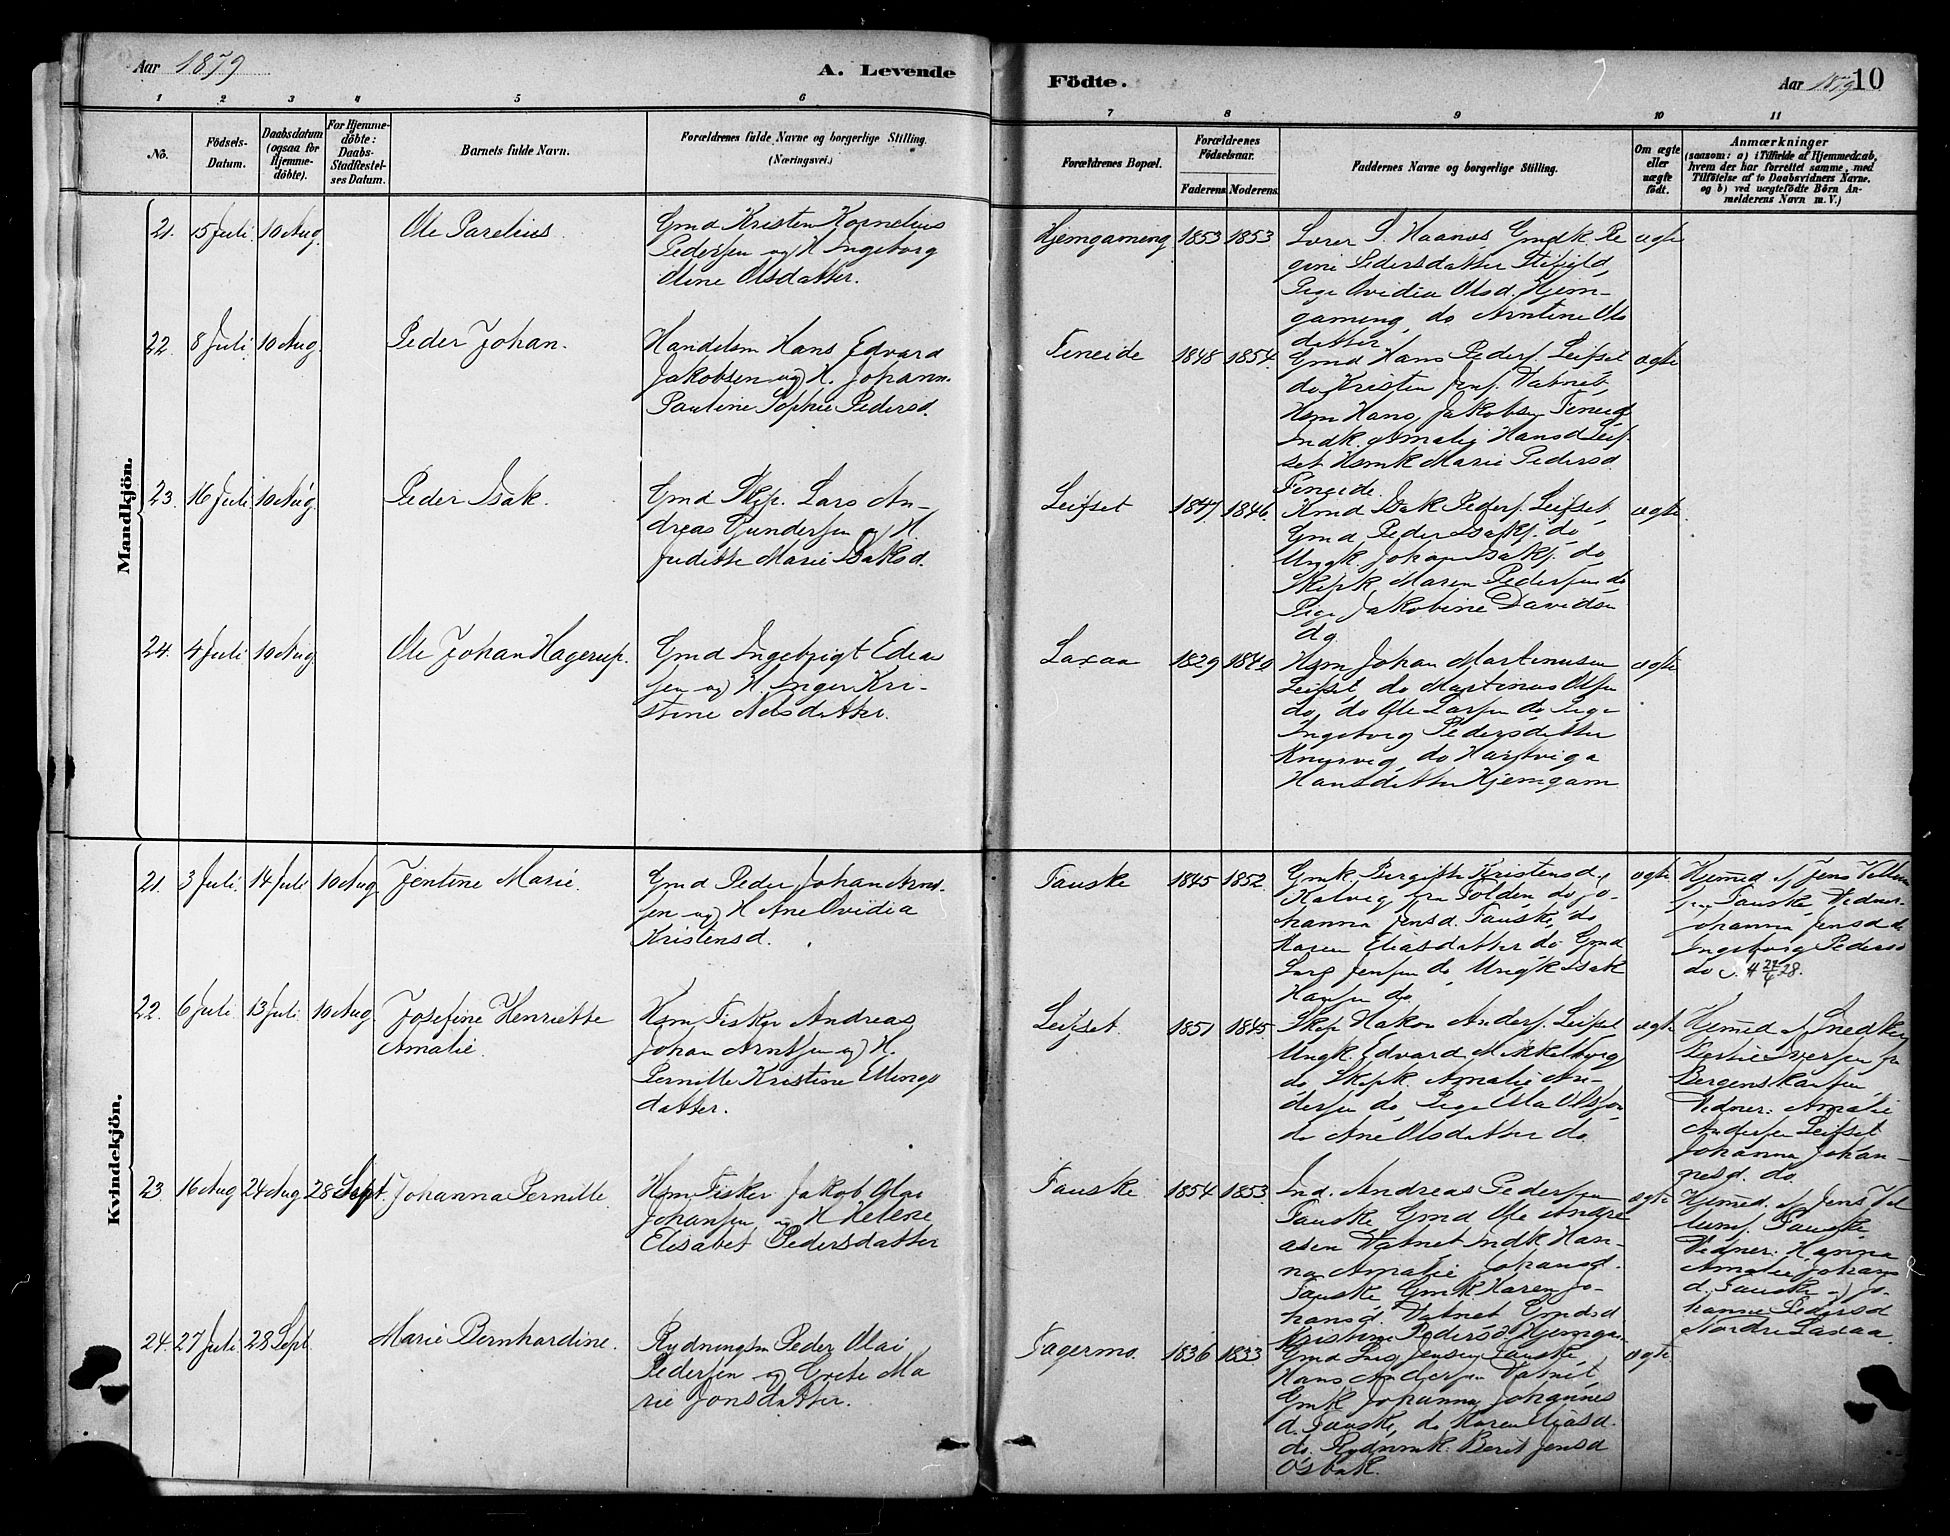 Aar 1879
A. Levende
Födte.
Aar 1879 10
1 2 3 4 5 6 7 8 9 10 11
No.
Födsels-
Datum.
Daabsdatum
(ogsaa for
Hjemme-
döbte).
For Hjemme-
döbte:
Daabs-
Stadfæstel-
ses Datum.
Barnets fulde Navn.
Forældrenes fulde Navne og borgerlige Stilling.
(Næringsvei.)
Forældrenes Bopæl.
Forældrenes
Födselsaar.
Faderens. Moderens.
Faddernes Navne og borgerlige Stilling.
Om ægte
eller
uægte
födt.
Anmærkninger
(saasom: a) i Tilfælde af Hjemmedaab,
hvem der har forrettet samme, med
Tilföielse af to Daabsvidners Navne,
og b) ved uægtefödte Börn An-
melderens Navn m.V.)
Mandkjön.
21. 15 Juli 10 Aug. Ole Parelius.
Gmd Kristen Kornelius
Pedersen og H. Ingeborg
Oline Olsdatter.
Hjemgaming 1853 1853
Lærer S. Haanes, Gmdk. Re
gine Pedersdatter
Pige Ovidia Olsd. Hjem-
gaming, do Arntine Ols
datter
ægte
22. 8 Juli 10 Aug. Peder Johan.
Handelsm Hans Edvard
Jakobsen og H. Johann.
Pauline Sophie Pedersd.
Fineide 1848 1854.
Gmd Hans Peders. Leifset
do Kristen Jens. Vatnet,
Hsm Hans Jakobsen Fineid
Indk. Amalie Hansd Leif-
set Hsmk Marie Pedersd
Fineide.
ægte
23. 16 Juli 10 Aug. Peder Isak.
Gmd Skip. Lars An-
dreas Gundersen og H.
Juditte Marie Isaksd.
Leifset 1847. 1846.
Kmd Isak Peders. Leifset,
Gmd Peder Isaks. do
Ungk. Johan Isaks. do,
Skipk. Maren Pedersen do
Pige Jakobine Davidsn
do
ægte
24. 4 Juli 10 Aug. Ole Johan Hagerup.
Gmd Ingebrigt Edias
sen og H. Inger Kri-
stine Nilsdatter.
Laxaa 1829 1840
Hsm Johan Martinusen
Leifset, do Martinus Olsen
do, do Ole Larsen do Pige
Ingeborg Pedersdatter
do Hartviga
Hansdatter Hjemgam
ægte
Kvindekjön.
21. 3 Juli. 14 Juli 10 Aug. Jentine Marie.
Gmd Peder Johan Arnt-
sen og H Ane Ovidia
Kristensd.
Fauske 1845 1852.
Gmk. Bergitte Kristensd.
Kalvig fra Folden do Jo-
hanna Jensd. Fauske, do
Karen Eliasdatter do Gmd
Lars Jensen do, Ungk Isak
Hansen do
ægte
Hjemed. af Jens Vellum
sen Fauske, Vidner.
Johanna Jensd do
Ingeborg Pedersd
do
22. 6 Juli 13 Juli. 10 Aug. Josefine Henriette
Amalie.
Hsm Fisker Andreas
Johan Arntsen og H.
Pernille Kristine Ellings
datter.
Leifset. 1851 1845.
Skip Hakon Anders. Leifset
Ungk. Edvard Mikkelborg
do Skipk. Amalie An-
dersen do, Pige Ida Olsson,
do Ane Olsdatter do.
ægte
Hjemed af Snedker
Bertin Iversen fra
Bergenskaften
Vidner: Amalie
Andersen Leifset
Johanna Johan-
nesd. do.
23. 16 Aug 24 Aug 28 Sept. Johanna Pernille
Hsm Fisker Jakob Olai
Johansen og H Helene
Elisabet Pedersdatter
Fauske 1854 1853.
Ind. Andreas Pedersen
Fauske Gmd Ole Andre
asen Vatnet Indk Han-
na Amalie Johansd.
Fauske Gmk. Karen Jo-
hansd. Vatnet Gmdsd
Kristine Pedersd Hjemga
ægte
Hjemed. af Jens Vel
lums. Fauske,
Vidner: Hanna
Amalie Johans
d. Fauske og Jo-
hanne Pedersd
Nordre Laxaa
24. 27 Juli 28 Sept Marie Bernhardine.
Rydningsm Peder Olai
Pedersen og Grete Ma
rie Jonsdatter.
Fagermo. 1836 1833
Gmd Lars Jensen Fauske,
Hans Andersen Vatnet,
Gmk. Johanna Johannes
d. Fauske, do Karen Eliasd.
do. Rydnmk. Berit Jensd
Osbak.
ægte